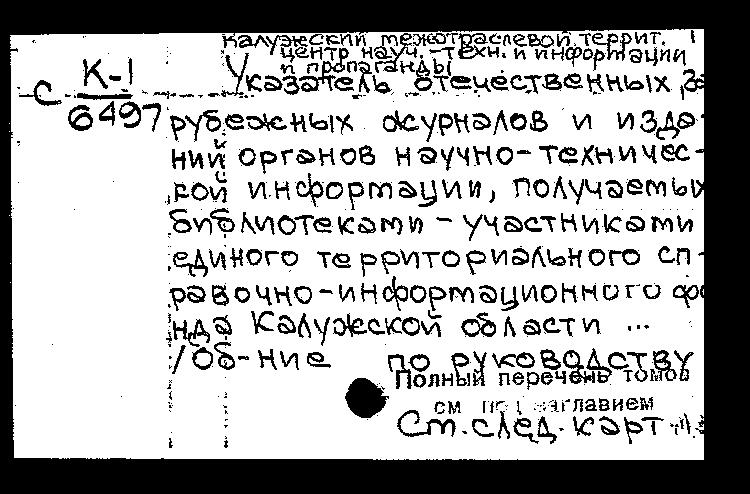 Калужский межотраслевой террит.
центр науч.-техн. и информации
и пропаганды
С К-1
6497
Указатель отечественных, за
рубежных журналов и изда-
ний органов научно-техничес-
кой информации, получаемых
библиотеками - участниками
единого территориального сп-
равочно-информационного фо
нда Калужской области ...
/Об-ние по руководству
Полный перечень томов
см под заглавием
См. след. карт.